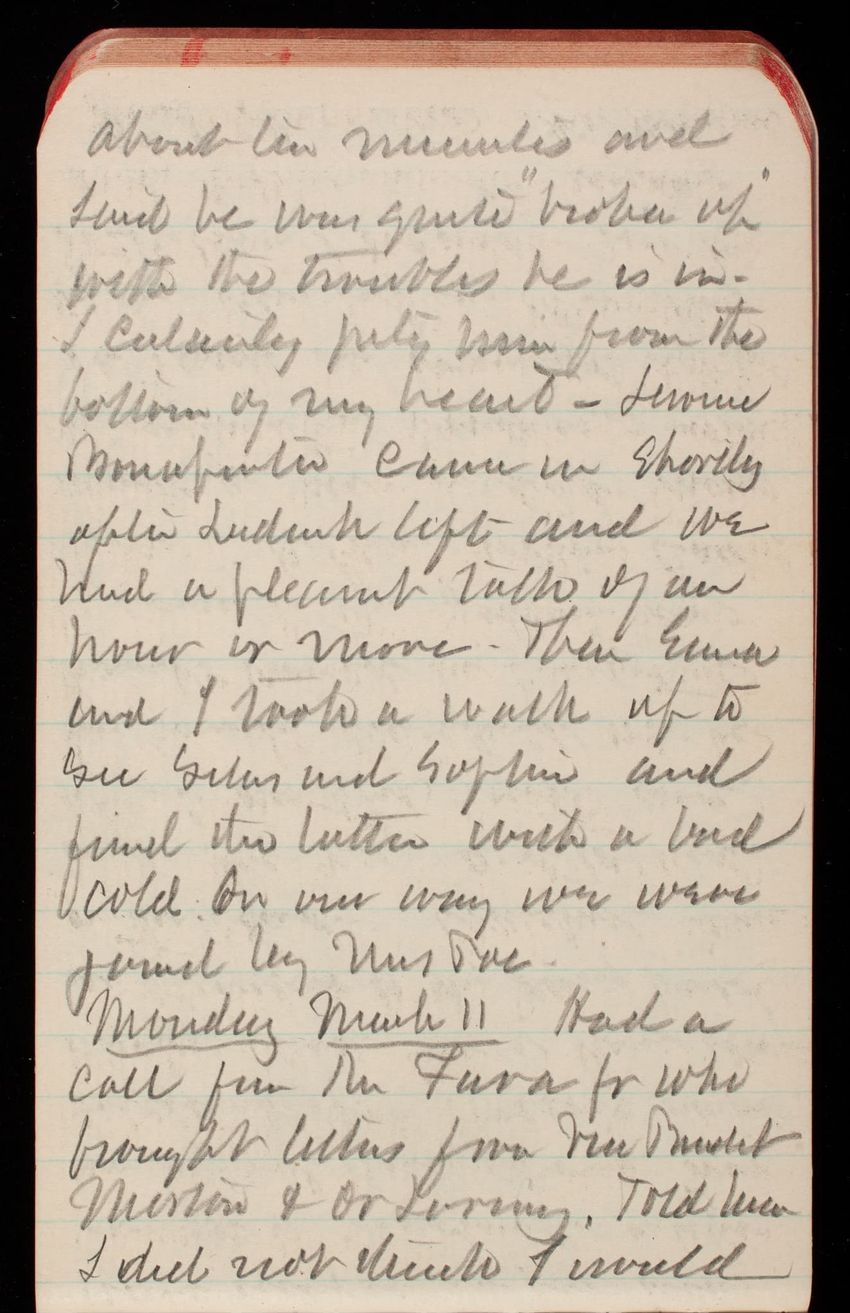 about ten minutes and
said he was quite "broken up"
with the troubles he is in-
I certainly pity him from the
bottom of my heart - Jerome
Bonaparte came in shortly
after left and we
had a pleasant talk of an
hour or more - Then Emma
and I took a walk up to
see Silas and Sophie and
find the latter with a bad
cold. On our way we were
joined by Mrs Poe.
Monday March 11 Had a
call from Mr Fava Jr who
brought letters from Vice Presdt
Morton & Dr Loring. Told him
I did not think I would